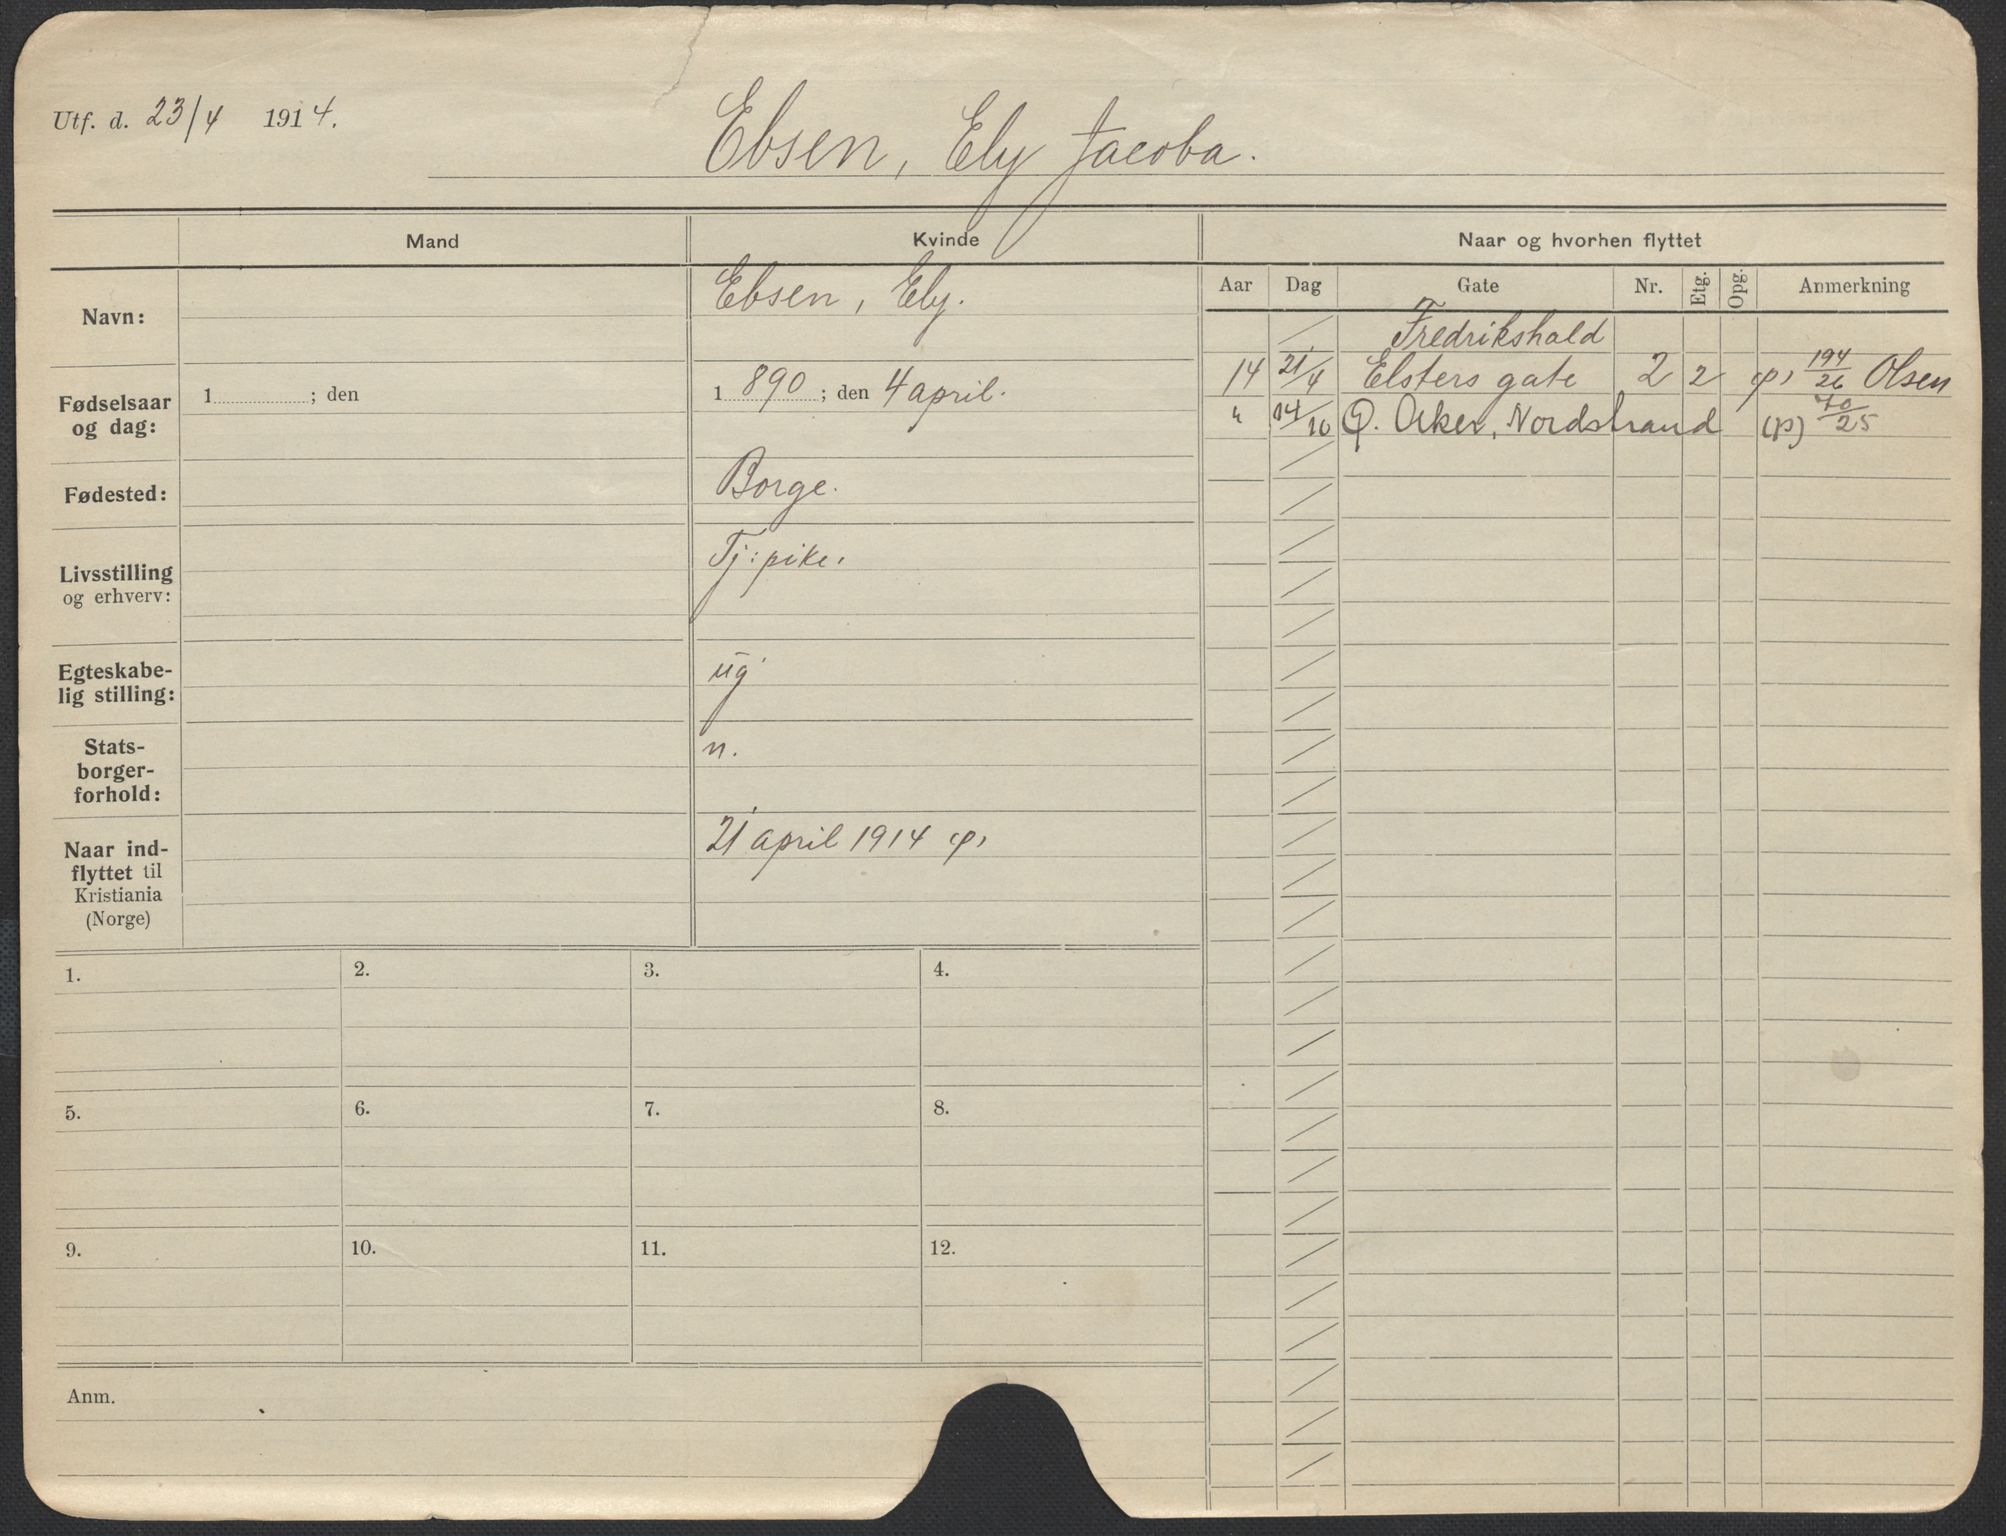 Utf. d. 23/4 1914.
Ebsen, Ely Jacoba.
Mand
Kvinde
Naar og hvorhen flyttet
Aar Dag Gate Nr. Etg. Opg. Anmerkning
Navn:
Ebsen, Ely.
Fødselsaar og dag:
1 ; den
1 890 ; den 4 april.
Fødested:
Borge.
Livsstilling
og erhverv:
Tj: pike.
Egteskabe-
lig stilling:
ug
Stats-
borger-
forhold:
n.
Naar ind-
flyttet til
Kristiania
(Norge)
21 april 1914 (p)
Fredrikshald
14 21/4 Elsters gate 2 2 (p) 194/26 Olsen
" 14/10 Ø. Aker, Nordstrand (p) 70/25
1. 2. 3. 4.
5. 6. 7. 8.
9. 10. 11. 12.
Anm.